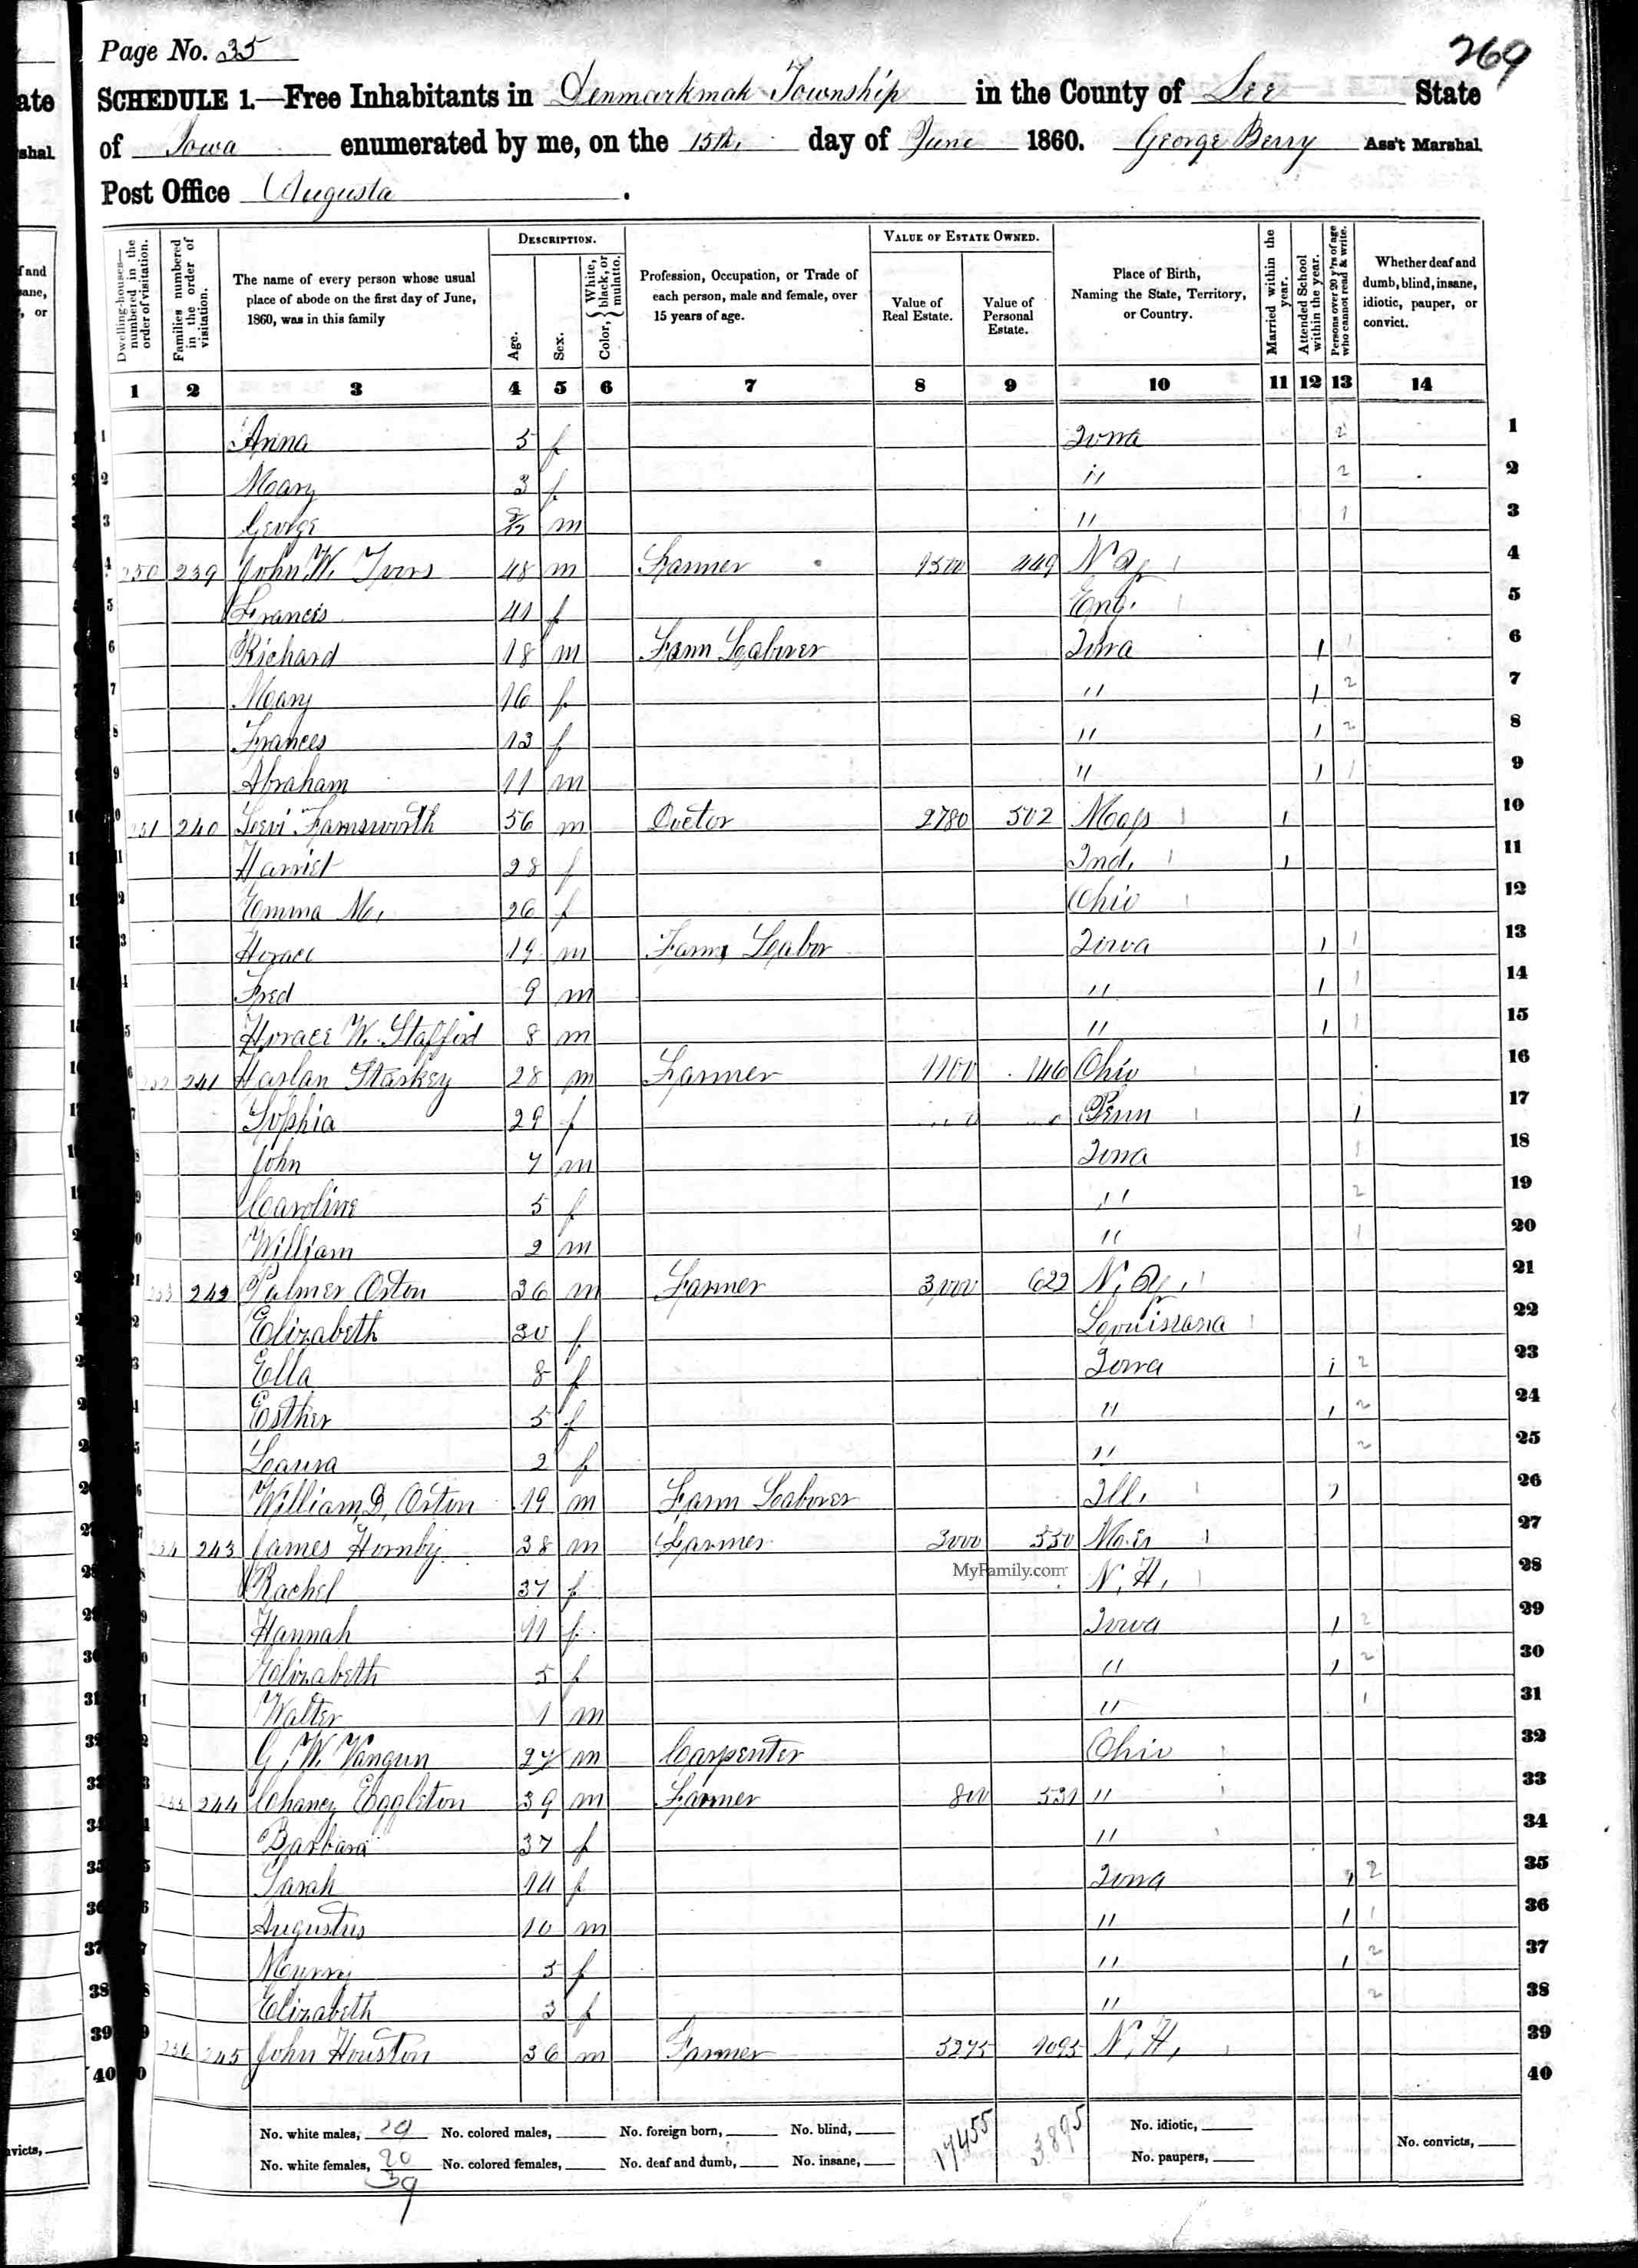 Page No. 35
269
SCHEDULE 1.—Free Inhabitants in Denmarkmak Township in the County of Lee State
of Iowa enumerated by me, on the 15th. day of June 1860. George Berry Ass't Marshal.
Post Office Augusta .
Dwelling-houses—numbered in the order of visitation.
Families numbered in the order of visitation.
The name of every person whose usual place of abode on the first day of June, 1860, was in this family
DESCRIPTION.
Age.
Sex.
Color, { White, black, or mulatto.
Profession, Occupation, or Trade of each person, male and female, over 15 years of age.
VALUE OF ESTATE OWNED.
Value of Real Estate.
Value of Personal Estate.
Place of Birth, Naming the State, Territory, or Country.
Married within the year.
Attended School within the year.
Persons over 20 y'rs of age who cannot read & write.
Whether deaf and dumb, blind, insane, idiotic, pauper, or convict.
1 2 3 4 5 6 7 8 9 10 11 12 13 14
1 Anna 5 f Iowa 2 1
2 Mary 3 f " 2 2
3 George m " 1 3
4 250 239 John W. Ivers 48 m Farmer 1500 449 N Y 1 4
5 Francis 41 f Eng. 1 5
6 Richard 18 m Farm Laborer Iowa 1 1 6
7 Mary 16 f " 1 2 7
8 Frances 13 f " 1 2 8
9 Abraham 11 m " 1 1 9
10 251 240 Levi Farnsworth 56 m Doctor 2780 502 Mass 1 1 10
11 Harriet 28 f Ind. 1 1 11
12 Emma M. 26 f Ohio 1 12
13 Horace 19 m Farm Labor Iowa 1 1 13
14 Fred 9 m " 1 1 14
15 Horace W. Stafford 8 m " 1 1 15
16 252 241 Harlan Starkey 28 m Farmer 1100 146 Ohio 1 16
17 Sophia 29 f Penn 1 1 17
18 John 7 m Iowa 1 18
19 Caroline 5 f " 2 19
20 William 2 m " 1 20
21 253 242 Palmer Orton 36 m Farmer 3,000 622 N. Y. 1 21
22 Elizabeth 30 f Louisiana 1 22
23 Ella 8 f Iowa 1 2 23
24 Esther 5 f " 1 2 24
25 Laura 2 f " 2 25
26 William D. Orton 19 m Farm Laborer Ill. 1 1 26
27 254 243 James Hornby 38 m Farmer 3000 550 1 27
MyFamily.com
28 Rachel 37 f N. H. 1 28
29 Hannah 11 f Iowa 1 2 29
30 Elizabeth 5 f " 1 2 30
31 Walter 1 m " 1 31
32 G. W. Vangun 27 m Carpenter Ohio 1 32
33 255 244 Chancy Eggleston 39 m Farmer 800 531 " 1 33
34 Barbara 37 f " 1 34
35 Sarah 14 f Iowa 1 2 35
36 Augustus 10 m " 1 1 36
37 5 f " 1 2 37
38 Elizabeth 3 f " 2 38
39 256 245 John Houston 36 m Farmer 5275 1095 N. H. 1 39
40 40
No. white males, 19 No. colored males, No. foreign born, No. blind, 17455 3895 No. idiotic,
No. white females, 20 No. colored females, No. deaf and dumb, No. insane, No. paupers, No. convicts,
39